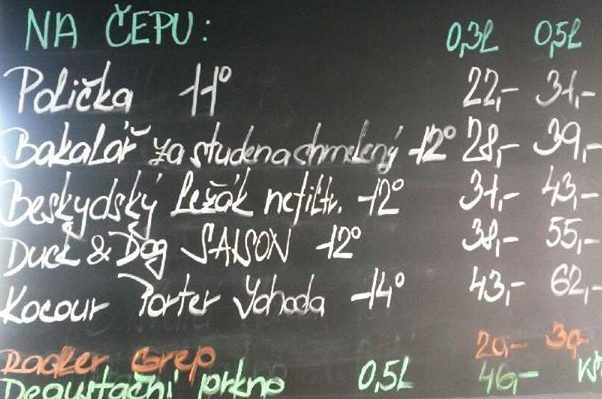 NA ČEPU: 0,3L 0,5L
Polička 11° 22,- 31,-
Bakalář za studena chmelený 12° 28,- 39,-
Beskydský ležák nefiltr. -12° 31,- 43,-
Duck & Dog SAISON -12° 38,- 55,-
Kocour Porter Jahoda -14° 43,- 62,-
Grep 20,- 30,-
Degustační prkno 0,5L 46,- Kč